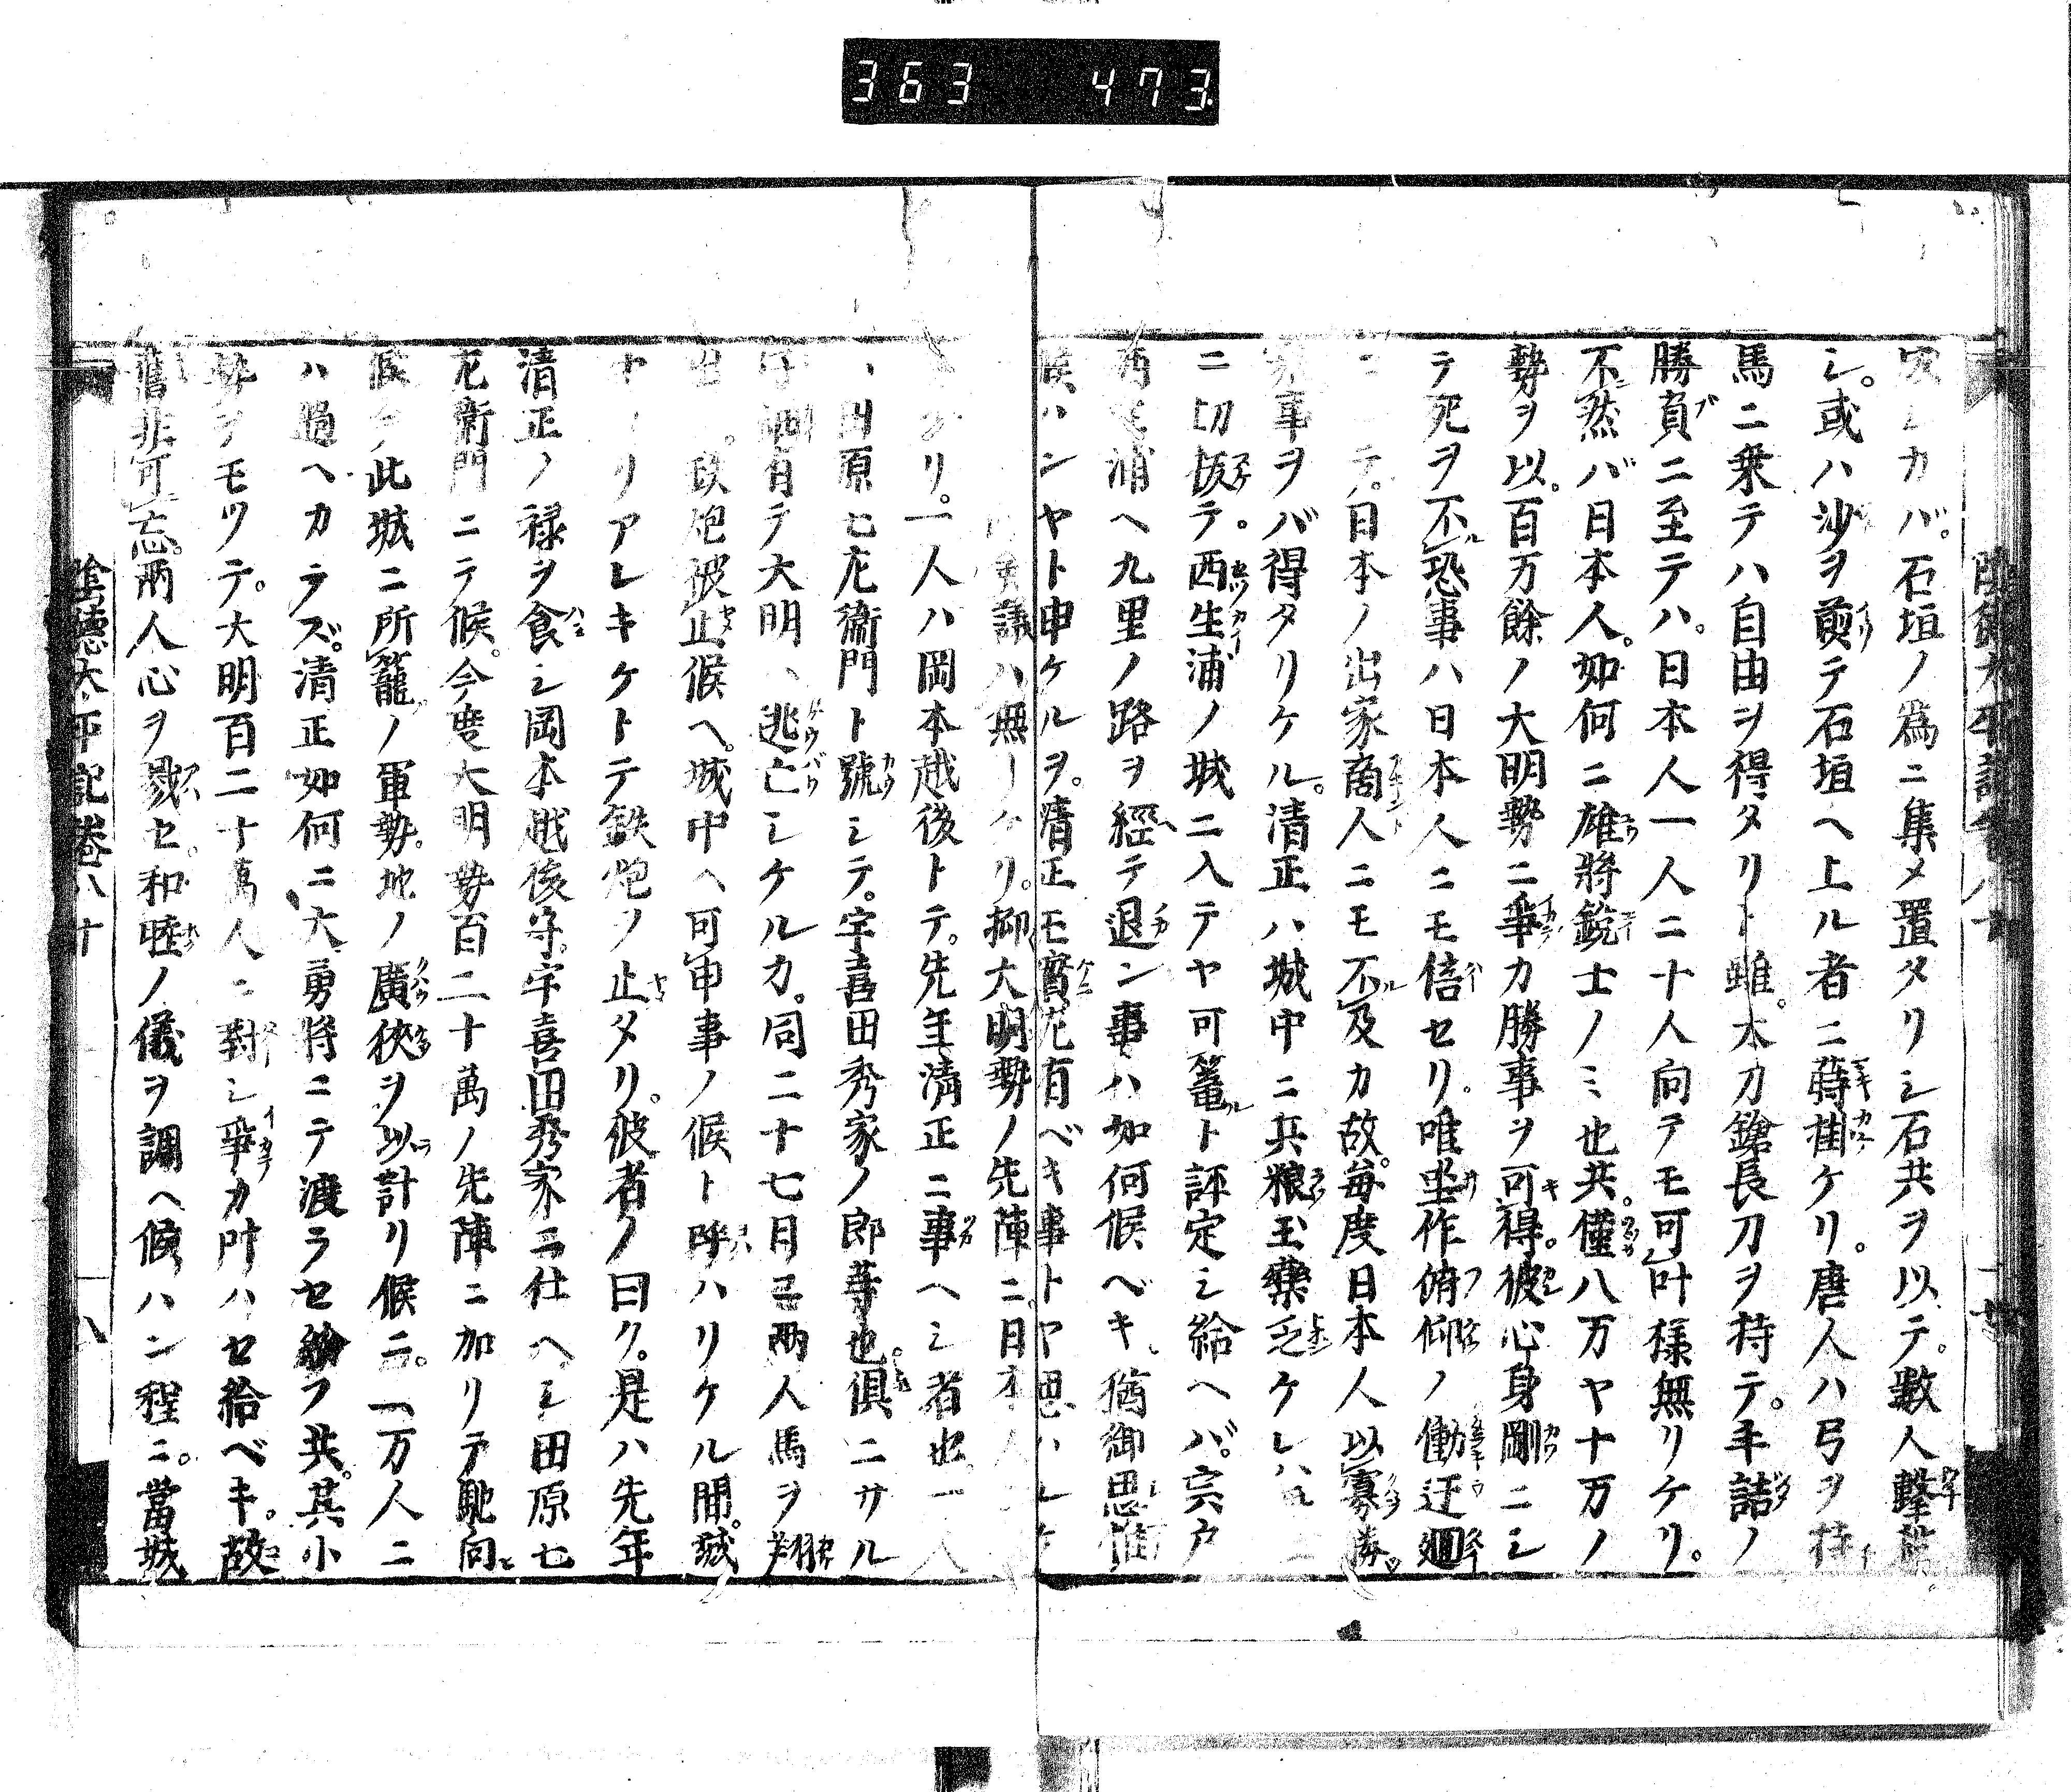 363 473
カバ。石垣ノ爲ニ集メ置タリシ石共ヲ以テ。數人撃
シ。或ハ沙ヲ煎テ石垣ヘ上ル者ニ蒔掛ケリ。唐人ハ弓ヲ持
馬ニ乗テハ自由ヲ得タリト雖。太刀鎗長刀ヲ持テ。手詰ノ
勝負ニ至テハ。日本人一人ニ十人向テモ可叶様無リケリ。
不然バ日本人。如何ニ雄將鋭士ノミ也共。僅八万ヤ十万ノ
勢ヲ以。百万餘ノ大明勢ニ爭カ勝事ヲ可得。彼心身剛ニシ
テ死ヲ不恐事ハ日本人ニモ倍セリ。唯坐作俯仰ノ働迂廻
テ。日本ノ出家商人ニモ不及カ故。毎度日本人以寡勝
事ヲバ得タリケル。清正ハ城中ニ兵粮玉藥乏ケレハ
ニ切抜テ。西生浦ノ城ニ入テヤ可篭ト評定シ給ヘバ。宍戸
西生浦ヘ九里ノ路ヲ經テ退ン事ハ如何候ベキ。猶御思惟
候ハンヤト申ケルヲ。清正モ實左有ベキ事トヤ思ハレケ
議ハ無ーケリ。抑大明勢ノ先陣ニ。日本人
リ。一人ハ岡本越後トテ。先年清正ニ事ヘシ者也。一人
ハ田原七左衞門ト號シテ。宇喜田秀家ノ郎等也。倶ニサル
有テ大明ヘ逃亡シケルカ。同二十七日ニ兩人馬ヲ翔
出。鉄炮被止候ヘ。城中ヘ可申事ノ候ト呼ハリケル間。城
ヨリアレキケトテ鉄炮ヲ止タリ。彼者ノ曰ク。是ハ先年
清正ノ禄ヲ食シ岡本越後守。宇喜田秀家ニ仕ヘシ田原七
左衞門ニテ候。今度大明勢百二十萬ノ先陣ニ加リテ馳向
候。此城ニ所籠ノ軍勢。地ノ廣狹ヲ以計リ候ニ。一万人ニ
ハ過ヘカラズ。清正如何ニ大勇將ニテ渡ラセ給フ共。其小
勢ヲモツテ。大明百二十萬人ニ對シ爭カ叶ハセ給ベキ。故
舊非可忘。兩人心ヲ戮セ。和睦ノ儀ヲ調ヘ候ハン程ニ。當城
陰德太平記卷八十
八